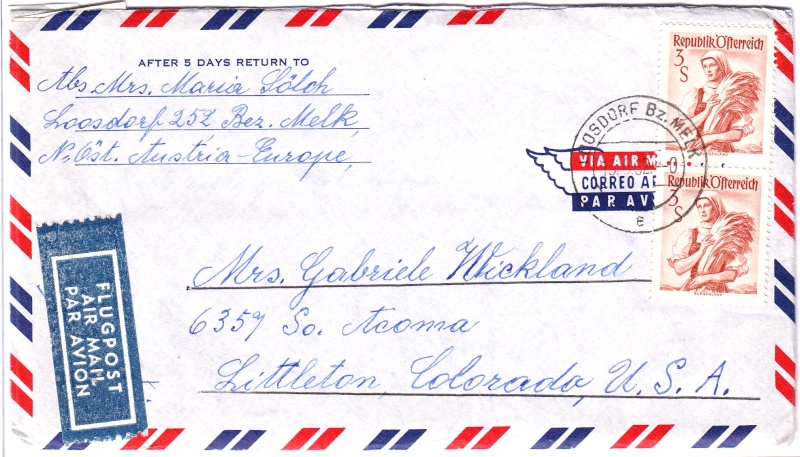 AFTER 5 DAYS RETURN TO
Abs. Mrs. Maria Sölch
Loosdorf 252 Bez. Melk,
N. Öst. Austria-Europe,
Republik Österreich
3
S
OOSDORF BZ. MELK
VIA AIR M
CORREO AE
PAR AV
e
Republik Österreich
3
S
BURGENLAND
FLUGPOST
AIR MAIL
PAR AVION
Mrs. Gabriele Wickland
6357 So. Acoma
Littleton, Colorado, U. S. A.